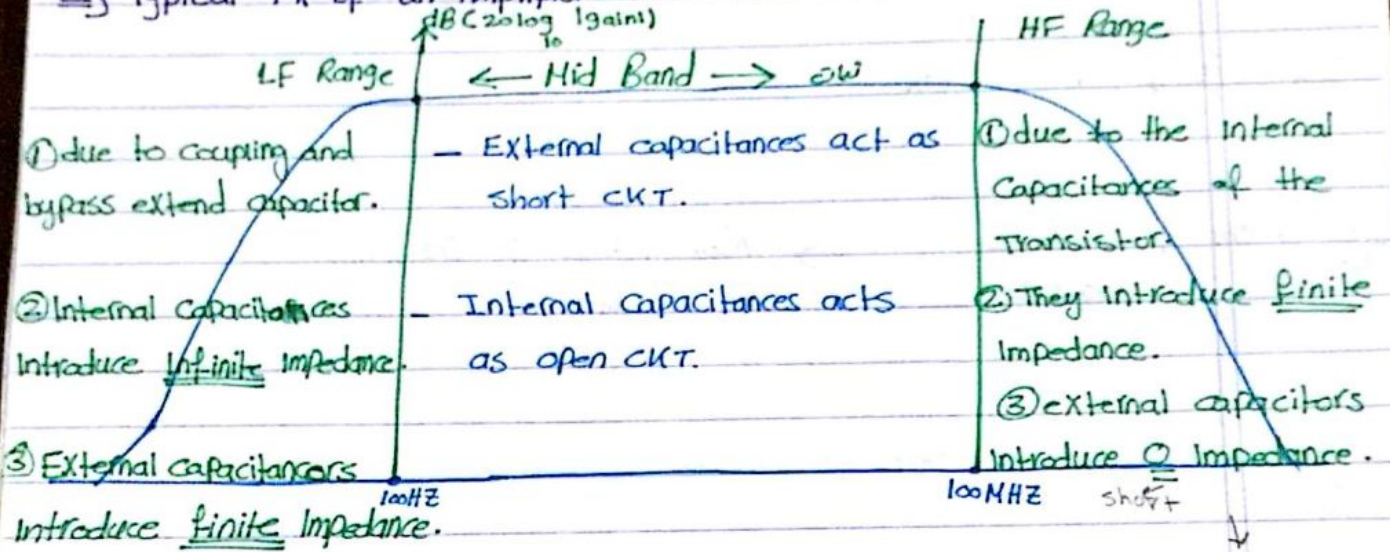 dB (20log |gain|)
10
HF Range
LF Range
← Mid Band →
① due to coupling and
bypass extend capacitor.
② Internal Capacitances
Introduce Infinite Impedance.
③ External capacitancors
Introduce finite Impedance.
– External capacitances act as
short CKT.
– Internal Capacitances acts
as open CKT.
① due to the internal
Capacitances of the
Transistor.
② They introduce finite
Impedance.
③ external capacitors
Introduce 0 Impedance.
short
100HZ
100MHZ